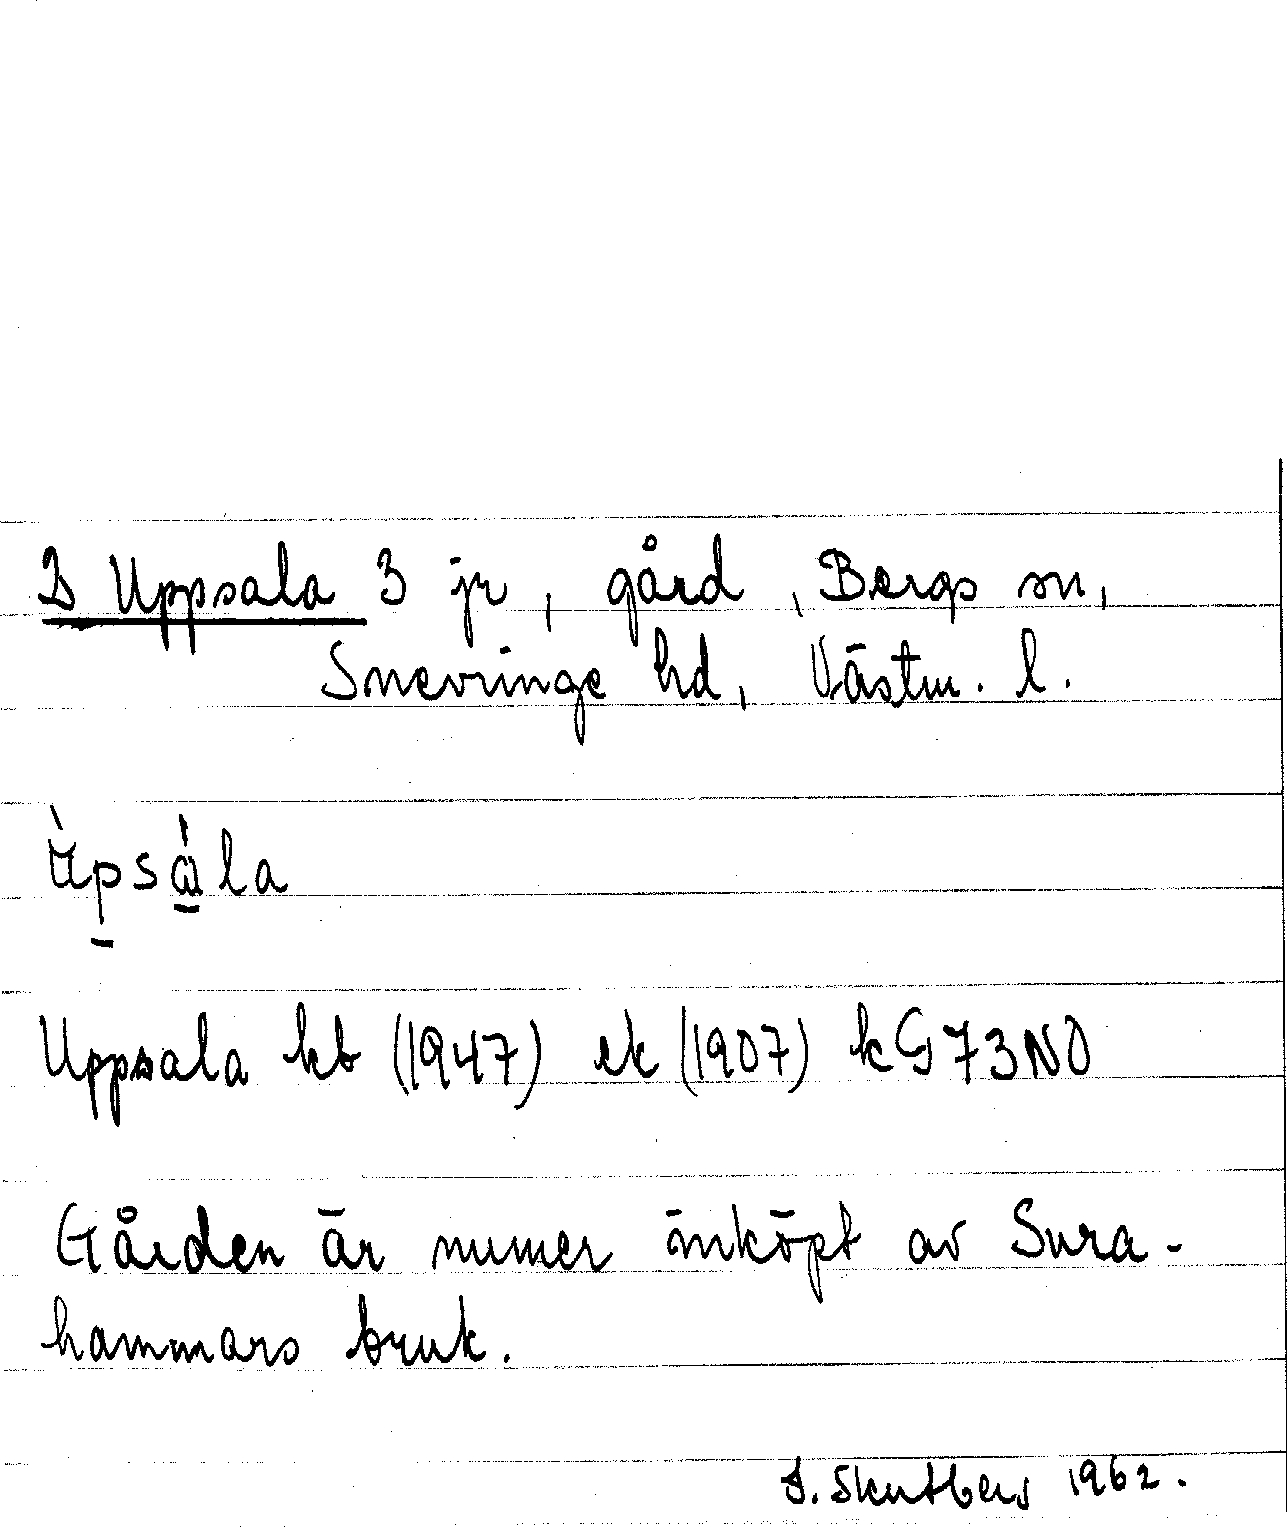 D Uppsala 3 jr, gård, Bergs sn,
Snevringe hd, Västm. l.
Ùpsála
Uppsala kb (1947) ek (1907) kG73NO
Gården är numer inköpt av Sura-
hammars bruk.
Skutberg 1962.